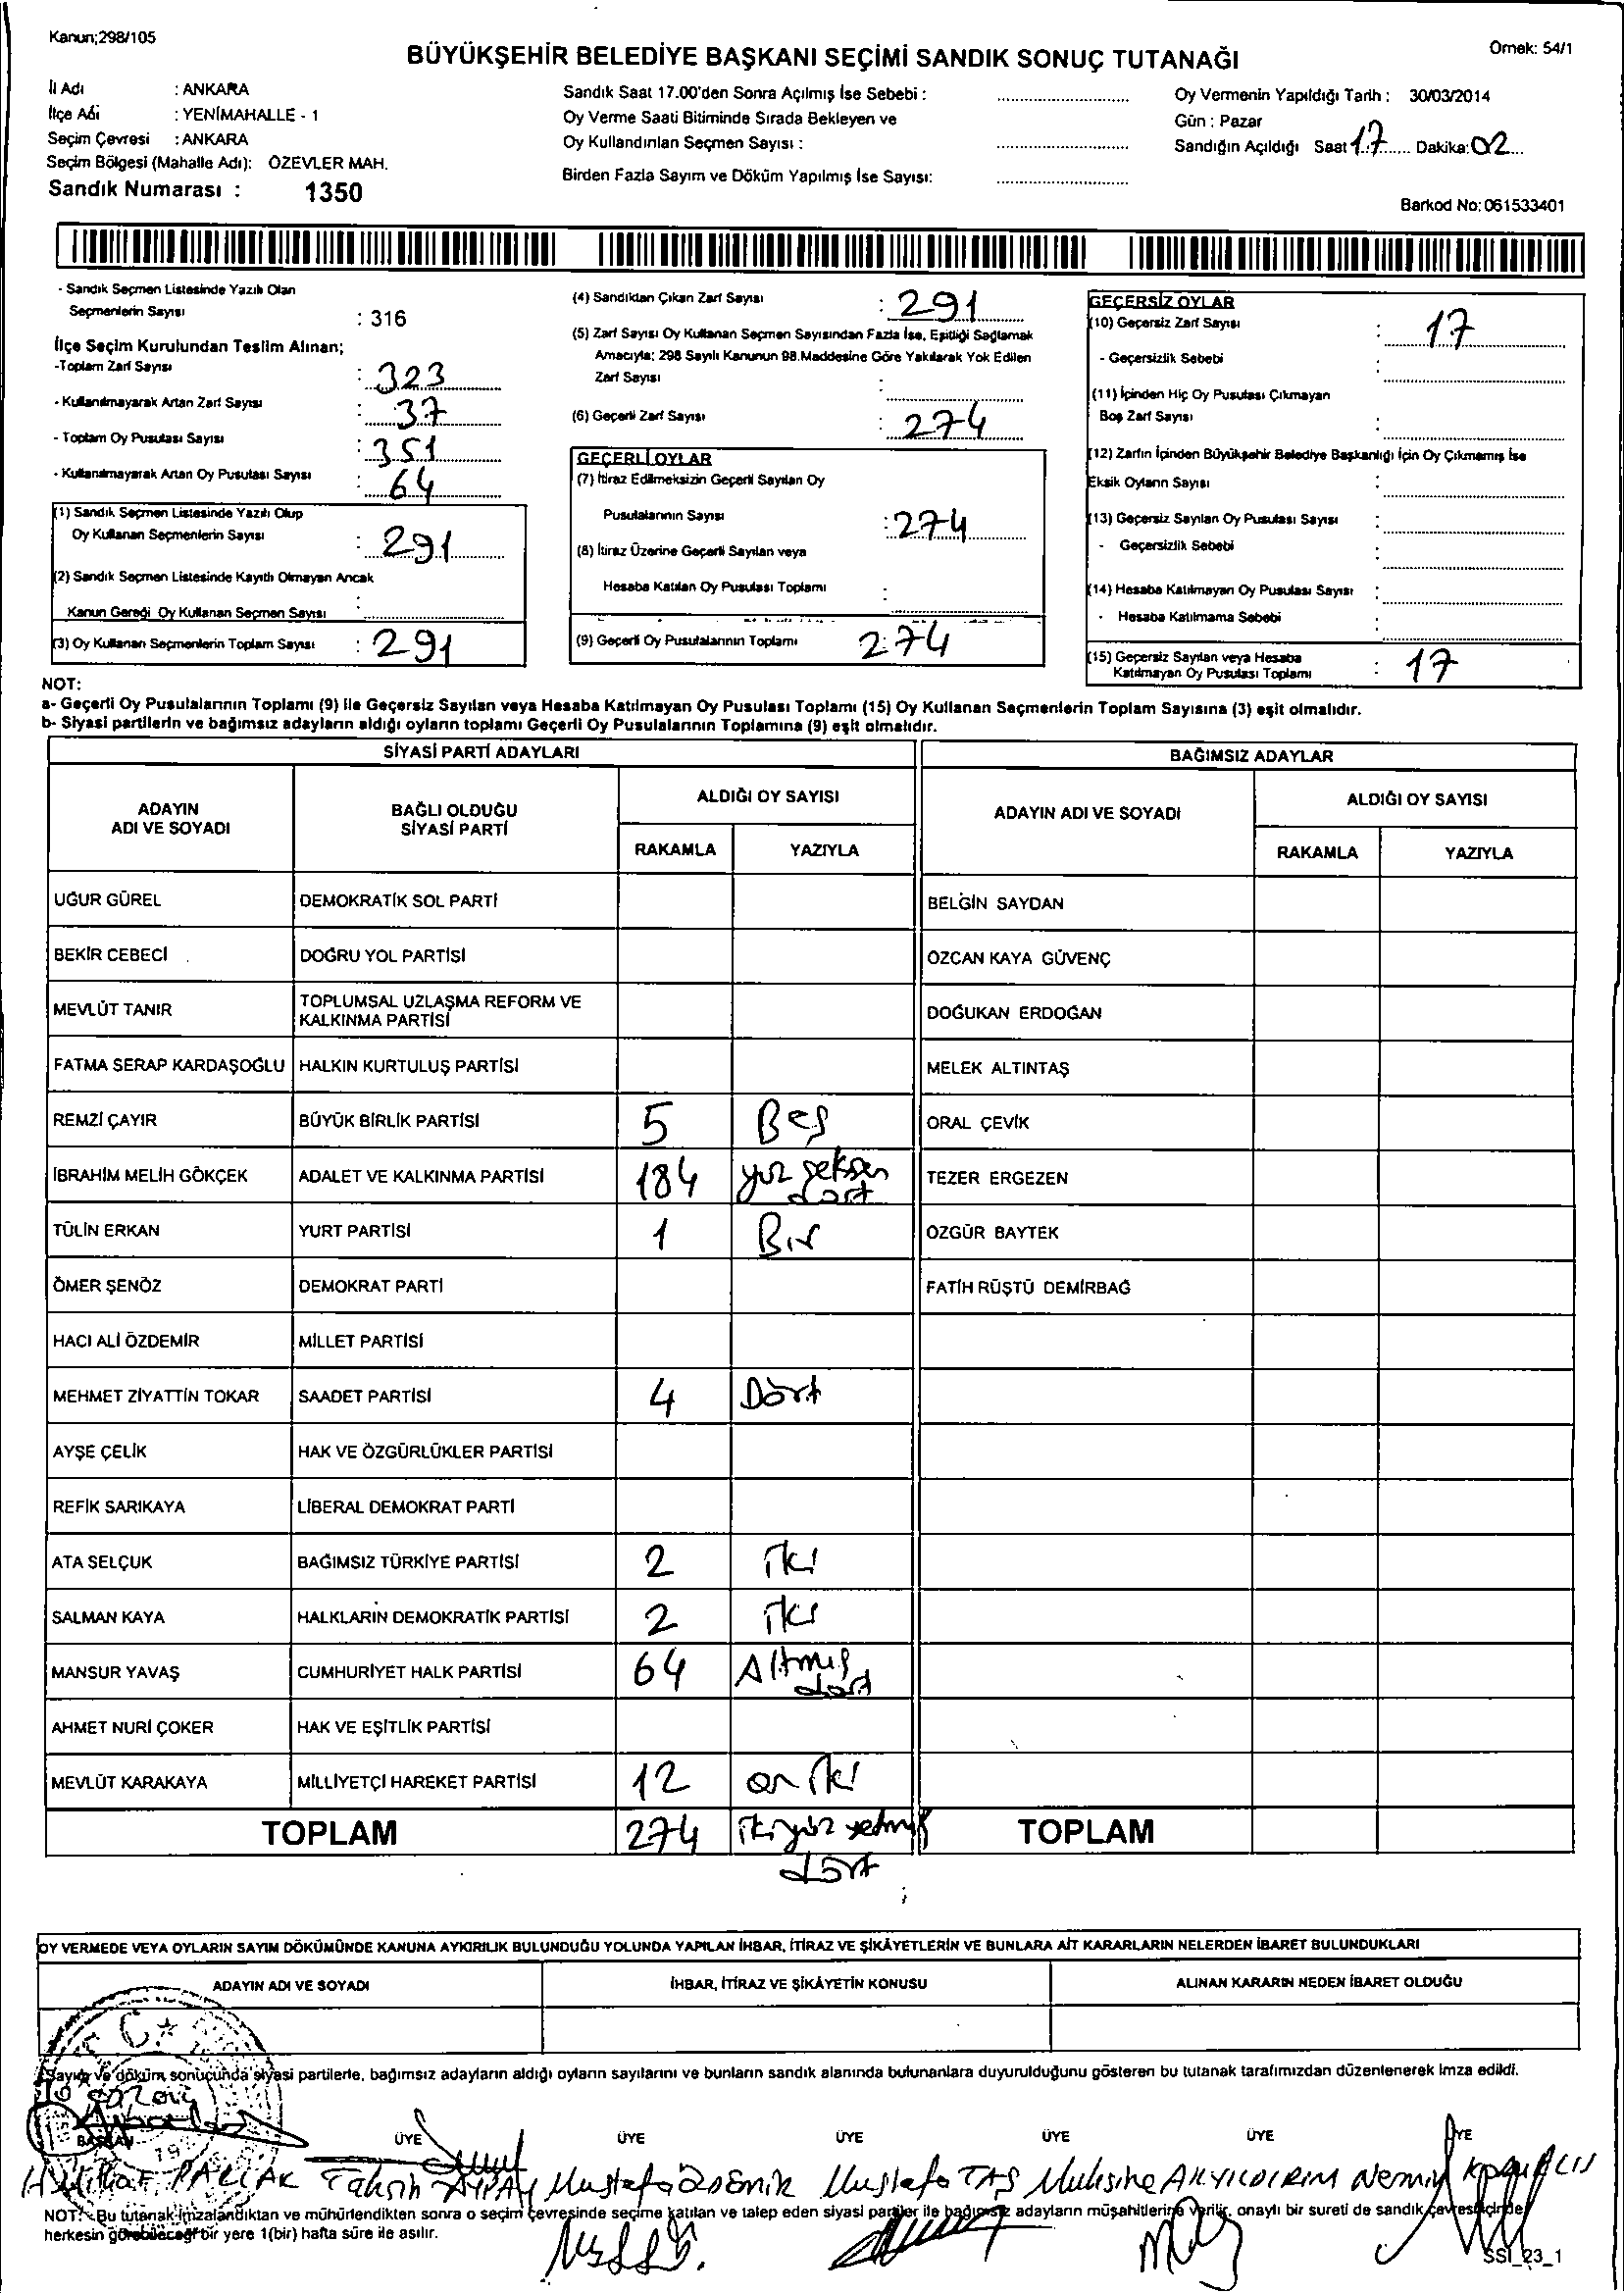 Kanun;298/105
BÜYÜKŞEHİR BELEDİYE BAŞKANI SEÇİMİ SANDIK SONUÇ TUTANAĞI
Örnek: 54/1
İl Adı : ANKARA
İlçe Adı : YENİMAHALLE - 1
Seçim Çevresi : ANKARA
Seçim Bölgesi (Mahalle Adı): ÖZEVLER MAH.
Sandık Numarası : 1350
Sandık Saat 17.00'den Sonra Açılmış İse Sebebi :
Oy Verme Saati Bitiminde Sırada Bekleyen ve
Oy Kullandırılan Seçmen Sayısı :
Birden Fazla Sayım ve Döküm Yapılmış İse Sayısı:
Oy Vermenin Yapıldığı Tarih : 30/03/2014
Gün : Pazar
Sandığın Açıldığı Saat 17 Dakika: 02
Barkod No: 061533401
- Sandık Seçmen Listesinde Yazılı Olan
Seçmenlerin Sayısı : 316
İlçe Seçim Kurulundan Teslim Alınan;
-Toplam Zarf Sayısı : 323
- Kullanılmayarak Artan Zarf Sayısı : 37
- Toplam Oy Pusulası Sayısı : 351
- Kullanılmayarak Artan Oy Pusulası Sayısı : 64
(1) Sandık Seçmen Listesinde Yazılı Olup
Oy Kullanan Seçmenlerin Sayısı : 291
(2) Sandık Seçmen Listesinde Kayıtlı Olmayan Ancak
Kanun Gereği Oy Kullanan Seçmen Sayısı :
(3) Oy Kullanan Seçmenlerin Toplam Sayısı : 291
(4) Sandıktan Çıkan Zarf Sayısı : 291
(5) Zarf Sayısı Oy Kullanan Seçmen Sayısından Fazla İse, Eşitliği Sağlamak
Amacıyla; 298 Sayılı Kanunun 98.Maddesine Göre Yakılarak Yok Edilen
Zarf Sayısı :
(6) Geçerli Zarf Sayısı : 274
GEÇERLİ OYLAR
(7) İtiraz Edilmeksizin Geçerli Sayılan Oy
Pusulalarının Sayısı : 274
(8) İtiraz Üzerine Geçerli Sayılan veya
Hesaba Katılan Oy Pusulası Toplamı :
(9) Geçerli Oy Pusulalarının Toplamı 274
GEÇERSİZ OYLAR
(10) Geçersiz Zarf Sayısı : 17
- Geçersizlik Sebebi :
(11) İçinden Hiç Oy Pusulası Çıkmayan
Boş Zarf Sayısı :
(12) Zarfın İçinden Büyükşehir Belediye Başkanlığı İçin Oy Çıkmamış İse
Eksik Oyların Sayısı :
(13) Geçersiz Sayılan Oy Pusulası Sayısı :
- Geçersizlik Sebebi :
(14) Hesaba Katılmayan Oy Pusulası Sayısı :
- Hesaba Katılmama Sebebi :
(15) Geçersiz Sayılan veya Hesaba
Katılmayan Oy Pusulası Toplamı : 17
NOT:
a- Geçerli Oy Pusulalarının Toplamı (9) ile Geçersiz Sayılan veya Hesaba Katılmayan Oy Pusulası Toplamı (15) Oy Kullanan Seçmenlerin Toplam Sayısına (3) eşit olmalıdır.
b- Siyasi partilerin ve bağımsız adayların aldığı oyların toplamı Geçerli Oy Pusulalarının Toplamına (9) eşit olmalıdır.
SİYASİ PARTİ ADAYLARI
BAĞIMSIZ ADAYLAR
ADAYIN ADI VE SOYADI
BAĞLI OLDUĞU SİYASİ PARTİ
ALDIĞI OY SAYISI
RAKAMLA YAZIYLA
ADAYIN ADI VE SOYADI
ALDIĞI OY SAYISI
RAKAMLA YAZIYLA
UĞUR GÜREL DEMOKRATİK SOL PARTİ BELGİN SAYDAN
BEKİR CEBECİ DOĞRU YOL PARTİSİ ÖZCAN KAYA GÜVENÇ
MEVLÜT TANIR TOPLUMSAL UZLAŞMA REFORM VE KALKINMA PARTİSİ DOĞUKAN ERDOĞAN
FATMA SERAP KARDAŞOĞLU HALKIN KURTULUŞ PARTİSİ MELEK ALTINTAŞ
REMZİ ÇAYIR BÜYÜK BİRLİK PARTİSİ 5 Beş ORAL ÇEVİK
İBRAHİM MELİH GÖKÇEK ADALET VE KALKINMA PARTİSİ 184 yüz seksen dört TEZER ERGEZEN
TÜLİN ERKAN YURT PARTİSİ 1 Bir ÖZGÜR BAYTEK
ÖMER ŞENÖZ DEMOKRAT PARTİ FATİH RÜŞTÜ DEMİRBAĞ
HACI ALİ ÖZDEMİR MİLLET PARTİSİ
MEHMET ZİYATTİN TOKAR SAADET PARTİSİ 4 Dört
AYŞE ÇELİK HAK VE ÖZGÜRLÜKLER PARTİSİ
REFİK SARIKAYA LİBERAL DEMOKRAT PARTİ
ATA SELÇUK BAĞIMSIZ TÜRKİYE PARTİSİ 2 iki
SALMAN KAYA HALKLARIN DEMOKRATİK PARTİSİ 2 iki
MANSUR YAVAŞ CUMHURİYET HALK PARTİSİ 64 Altmış dört
AHMET NURİ ÇOKER HAK VE EŞİTLİK PARTİSİ
MEVLÜT KARAKAYA MİLLİYETÇİ HAREKET PARTİSİ 12 on iki
TOPLAM 274 ikiyüz yetmiş dört TOPLAM
OY VERMEDE VEYA OYLARIN SAYIM DÖKÜMÜNDE KANUNA AYKIRILIK BULUNDUĞU YOLUNDA YAPILAN İHBAR, İTİRAZ VE ŞİKÂYETLERİN VE BUNLARA AİT KARARLARIN NELERDEN İBARET BULUNDUKLARI
ADAYIN ADI VE SOYADI İHBAR, İTİRAZ VE ŞİKÂYETİN KONUSU ALINAN KARARIN NEDEN İBARET OLDUĞU
Sayım ve döküm sonucunda siyasi partilerle, bağımsız adayların aldığı oyların sayılarını ve bunların sandık alanında bulunanlara duyurulduğunu gösteren bu tutanak tarafımızdan düzenlenerek imza edildi.
BAŞKAN ÜYE ÜYE ÜYE ÜYE ÜYE ÜYE
PARLAK Tahsin Mustafa Özdemir Mustafa TAŞ Muhsine AKYILDIRIM
NOT: Bu tutanak imzalandıktan ve mühürlendikten sonra o seçim çevresinde seçime katılan ve talep eden siyasi partiler ile bağımsız adayların müşahitlerine verilir, onaylı bir sureti de sandık çevresi içinde
herkesin görebileceği bir yere 1(bir) hafta süre ile asılır.
SSI_23_1